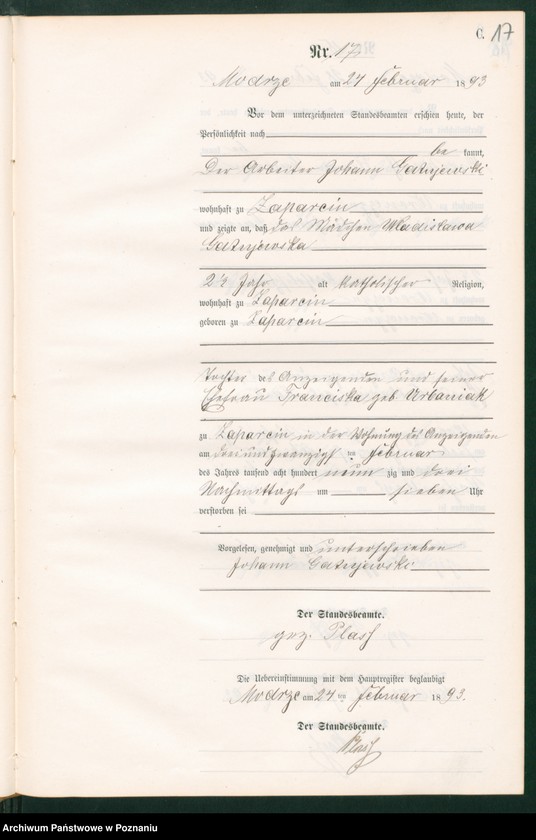 C. 17
Nr. 17
Modrze am 24 Februar 1893
Vor dem unterzeichneten Standesbeamten erschien heute, der
Persönlichkeit nach
be kannt,
Der Arbeiter Johann
wohnhaft zu Zaparcin
und zeigte an, daß das Mädchen Wladislawa
2½ Jahr alt katholischer Religion,
wohnhaft zu Zaparcin
geboren zu Zaparcin
Tochter des Anzeigenden und seiner
Ehefrau Franciska geb. Urbaniak
zu Zaparcin in der Wohnung des Anzeigenden
am drei und zwanzigs ten Februar
des Jahres tausend acht hundert neun zig und drei
Nachmittags um sieben Uhr
verstorben sei
Vorgelesen, genehmigt und unterschrieben
Johann
Der Standesbeamte.
gez.
Die Uebereinstimmung mit dem Hauptregister beglaubigt
Modrze am 24 ten Februar 1893.
Der Standesbeamte.
Archiwum Państwowe w Poznaniu